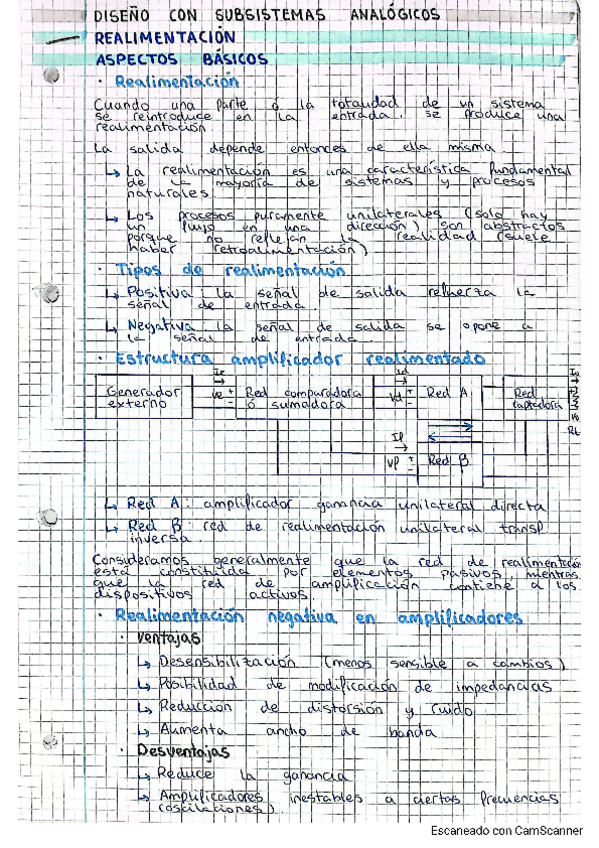 DISEÑO CON SUBSISTEMAS ANALÓGICOS
REALIMENTACIÓN
ASPECTOS BÁSICOS
· Realimentación
Cuando una parte ó la totalidad de un sistema
se reintroduce en la entrada, se produce una
realimentación.
La salida depende entonces de ella misma
↳ La realimentación es una característica fundamental
de la mayoría de sistemas y procesos
naturales
↳ Los procesos puramente unilaterales (solo hay
un flujo en una dirección) son abstractos
porque no reflejan la realidad (suele
haber retroalimentación)
· Tipos de realimentación
↳ Positiva: la señal de salida refuerza la
señal de entrada.
↳ Negativa: la señal de salida se opone a
la señal de entrada.
· Estructura amplificador realimentado
Ie Id Io
Generador externo Ve + - Red comparadora ó sumadora Vd + - Red A Red captadora Vo RL
If
Vf + - Red β
↳ Red A: amplificador ganancia unilateral directa
↳ Red β: red de realimentación unilateral transf.
inversa.
Consideramos generalmente que la red de realimentación
está constituida por elementos pasivos, mientras
que la red de amplificación contiene a los
dispositivos activos.
· Realimentación negativa en amplificadores
· Ventajas
↳ Desensibilización (menos sensible a cambios)
↳ Posibilidad de modificación de impedancias
↳ Reducción de distorsión y ruido
↳ Aumenta ancho de banda
· Desventajas
↳ Reduce la ganancia
↳ Amplificadores inestables a ciertas frecuencias
(oscilaciones).
Escaneado con CamScanner